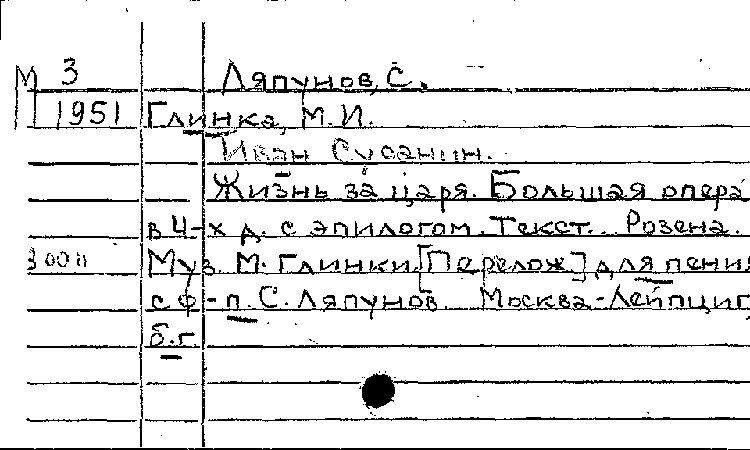 М 3 Ляпунов, С.
1951 Глинка, М.И.
Иван Сусанин.
Жизнь за царя. Большая опера
в 4-х д. с эпилогом. Текст.. Розена.
Муз. М. Глинки. [Перелож.] для пения
с ф-п. С. Ляпунов. Москва-Лейпциг,
б.г.